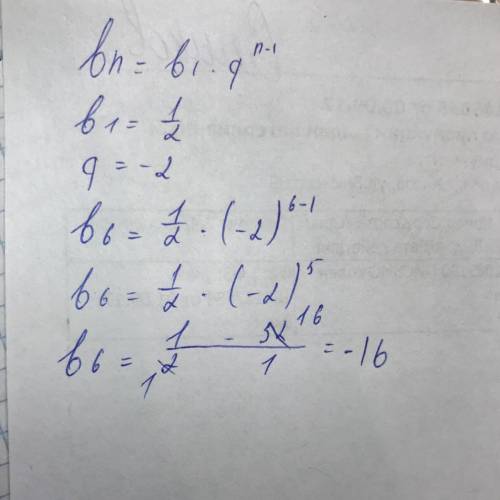 bn = b1 · q^n-1
b1 = 1/2
q = -2
b6 = 1/2 · (-2)^6-1
b6 = 1/2 · (-2)^5
b6 = 1/2 - 32/1 = -16
16
1